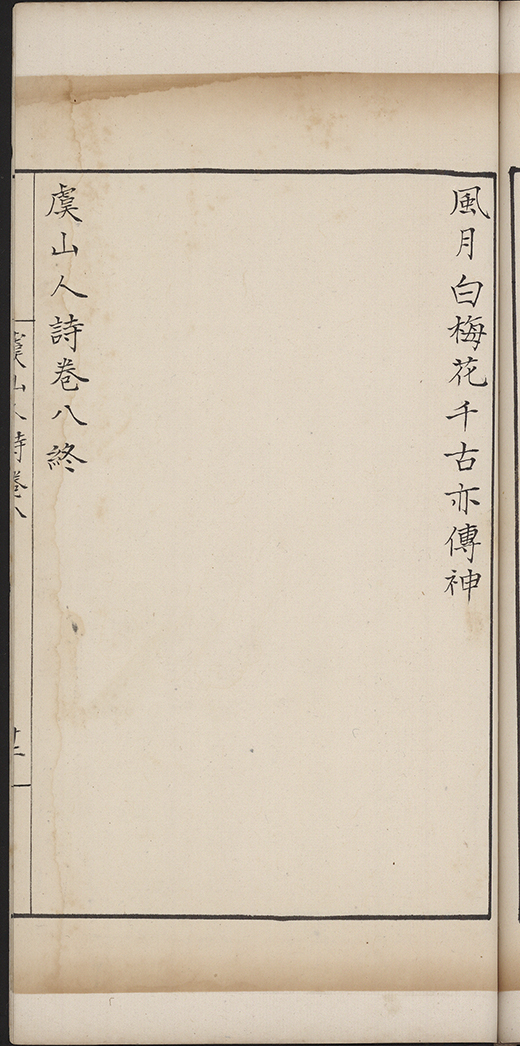 風月白梅花千古亦傳神
虞山人詩卷八終
虞山人詩卷八
廿二